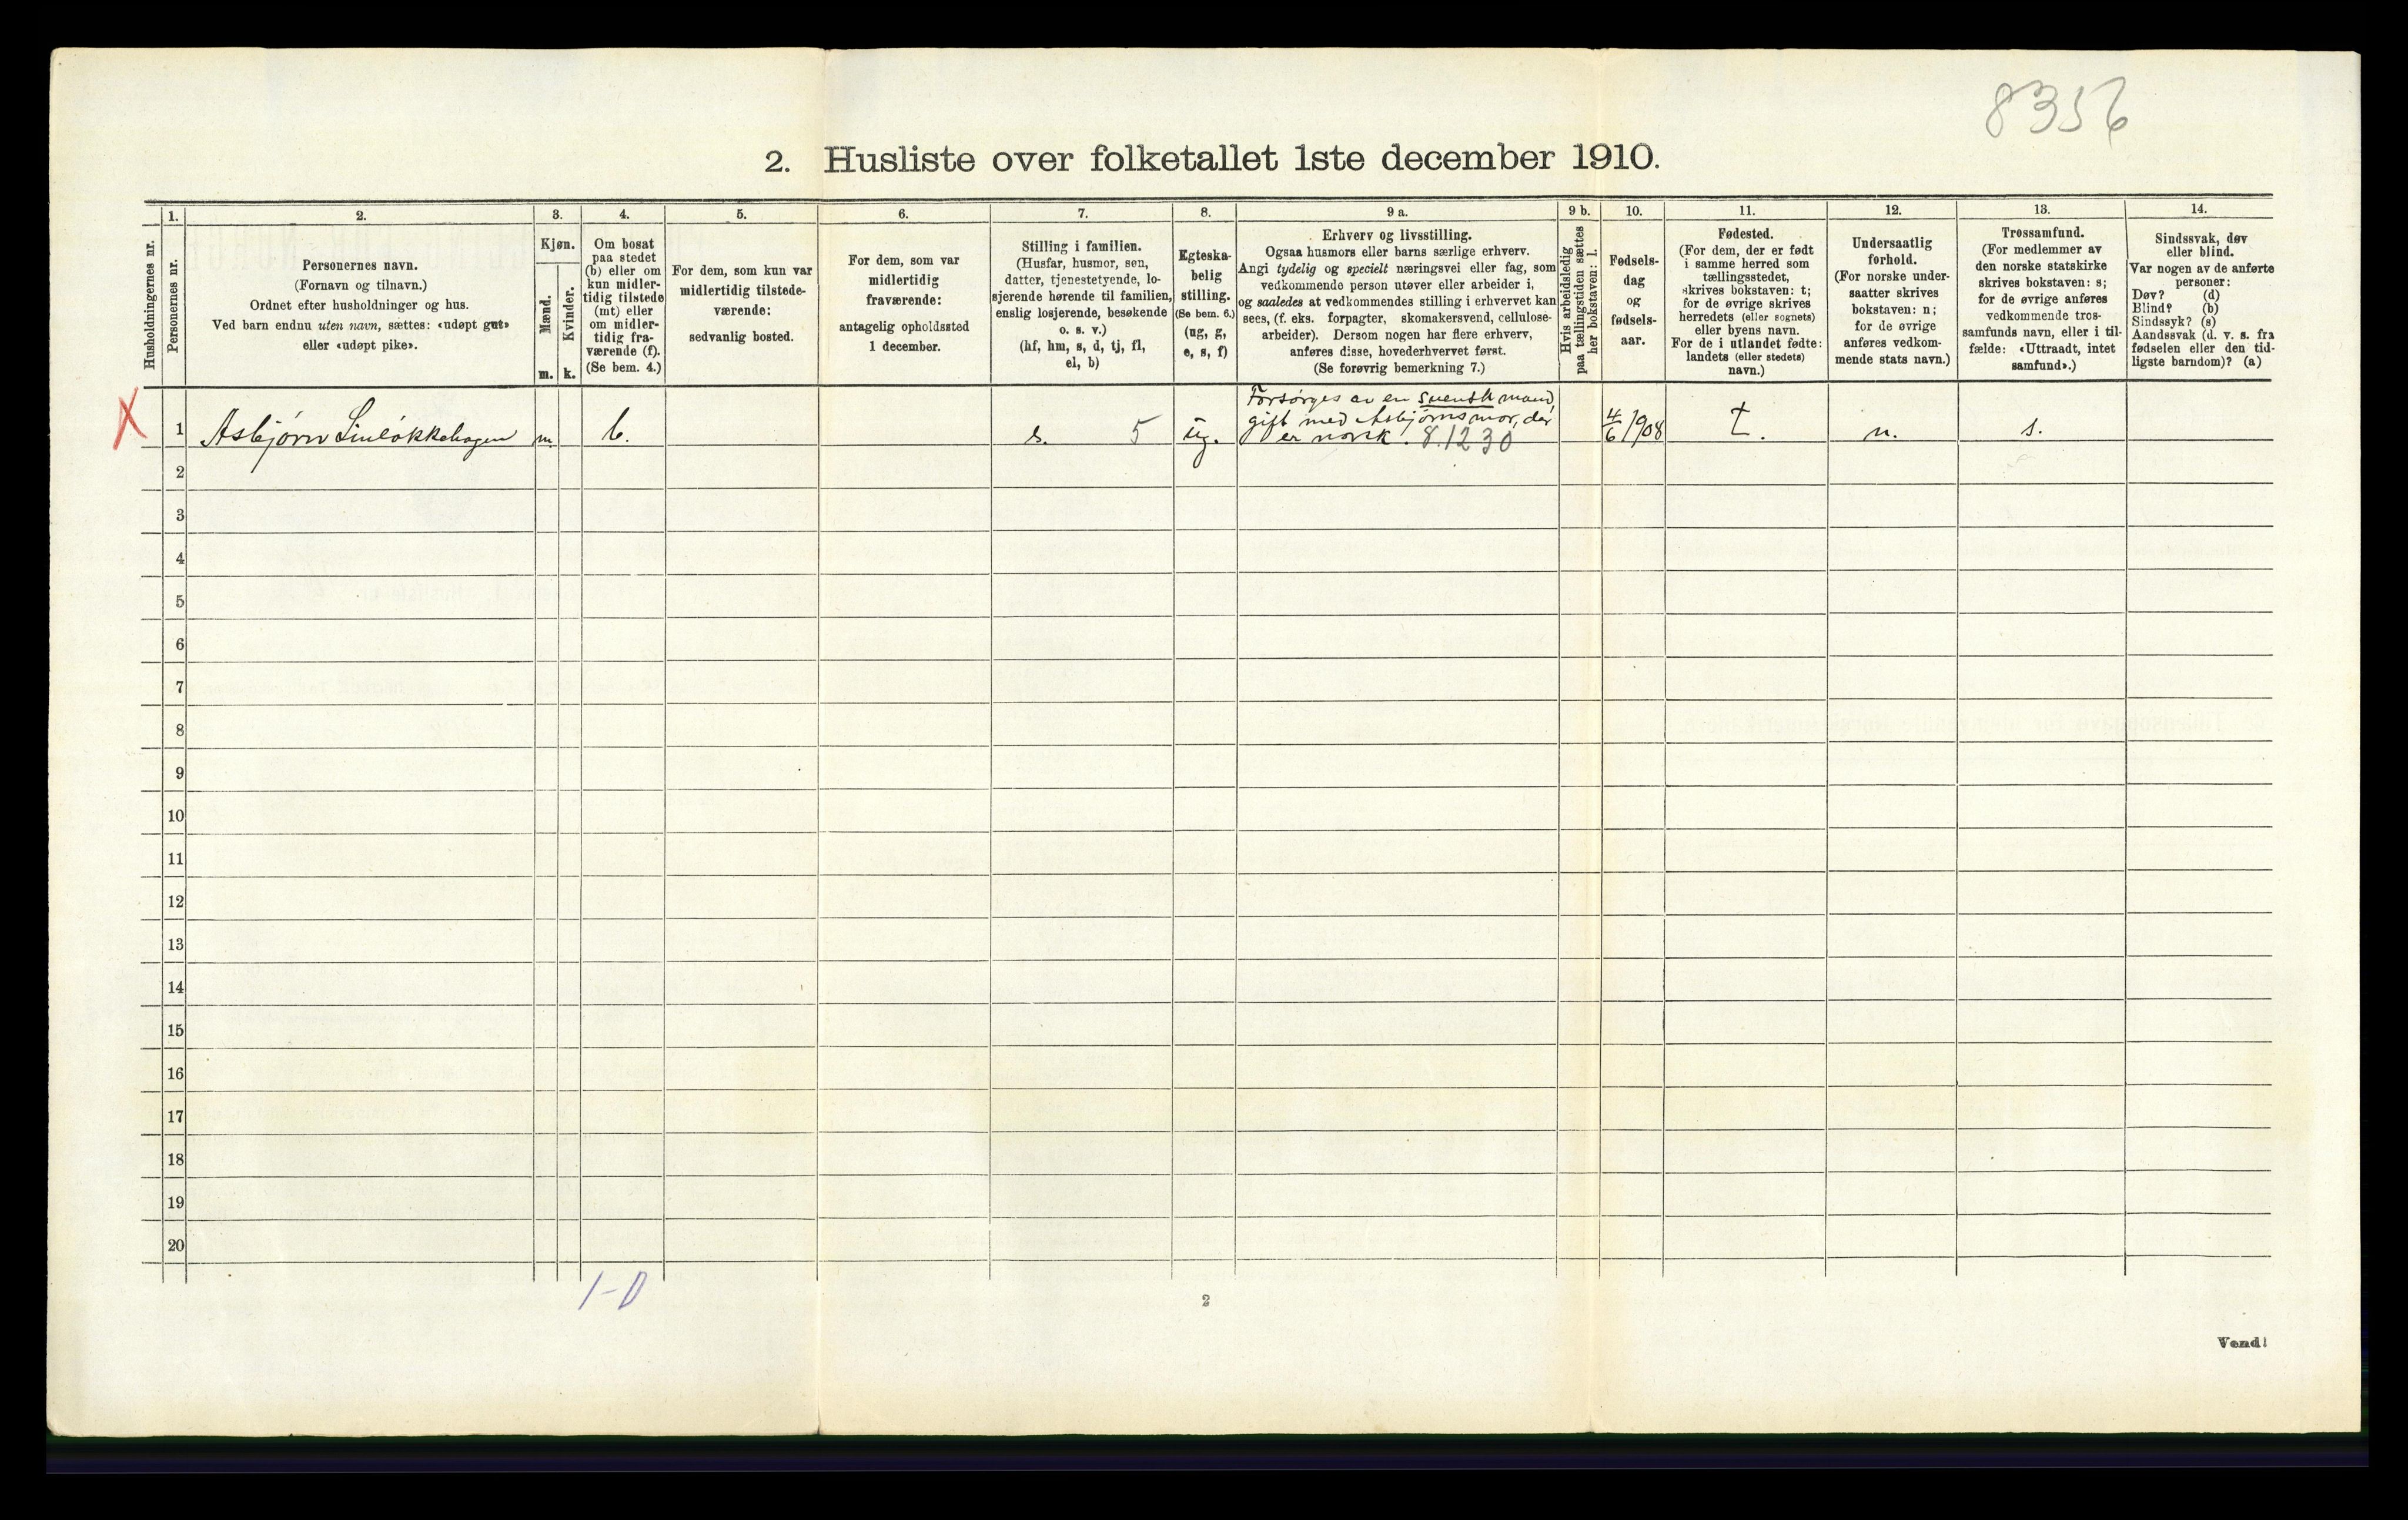 8356
2. Husliste over folketallet 1ste december 1910.
Husholdningernes nr.
1.
Personernes nr.
2.
Personernes navn.
(Fornavn og tilnavn.)
Ordnet efter husholdninger og hus.
Ved barn endnu uten navn, sættes: «udøpt gut»
eller «udøpt pike».
3.
Kjøn.
Mænd.
Kvinder.
m.
k.
4.
Om bosat
paa stedet
(b) eller om
kun midler-
tidig tilstede
(mt) eller
om midler-
tidig fra-
værende (f).
(Se bem. 4.)
5.
For dem, som kun var
midlertidig tilstede-
værende:
sedvanlig bosted.
6.
For dem, som var
midlertidig
fraværende:
antagelig opholdssted
1 december.
7.
Stilling i familien.
(Husfar, husmor, søn,
datter, tjenestetyende, lo-
sjerende hørende til familien,
enslig losjerende, besøkende
o. s. v.)
(hf, hm, s, d, tj, fl,
el, b)
8.
Egteska-
belig
stilling.
(Se bem. 6.)
(ug, g,
e, s, f)
9 a.
Erhverv og livsstilling.
Ogsaa husmors eller barns særlige erhverv.
Angi tydelig og specielt næringsvei eller fag, som
vedkommende person utøver eller arbeider i,
og saaledes at vedkommendes stilling i erhvervet kan
sees, (f. eks. forpagter, skomakersvend, cellulose-
arbeider). Dersom nogen har flere erhverv,
anføres disse, hovederhvervet først.
(Se forøvrig bemerkning 7.)
9 b.
Hvis arbeidsledig
paa tællingstiden sættes
her bokstaven: l.
10.
Fødsels-
dag
og
fødsels-
aar.
11.
Fødested.
(For dem, der er født
i samme herred som
tællingsstedet,
skrives bokstaven: t;
for de øvrige skrives
herredets (eller sognets)
eller byens navn.
For de i utlandet fødte:
landets (eller stedets)
navn.)
12.
Undersaatlig
forhold.
(For norske under-
saatter skrives
bokstaven: n;
for de øvrige
anføres vedkom-
mende stats navn.)
13.
Trossamfund.
(For medlemmer av
den norske statskirke
skrives bokstaven: s;
for de øvrige anføres
vedkommende tros-
samfunds navn, eller i til-
fælde: «Uttraadt, intet
samfund».)
14.
Sindssvak, døv
eller blind.
Var nogen av de anførte
personer:
Døv? (d)
Blind? (b)
Sindssyk? (s)
Aandssvak (d. v. s. fra
fødselen eller den tid-
ligste barndom)? (a)
X
1 Asbjørn m. b. s. 5 ug.
Forsørges av en svensk mand,
gift med Asbjørns mor, der
er norsk. 8.1230
4/6 1908 t. n. s.
2
3
4
5
6
7
8
9
10
11
12
13
14
15
16
17
18
19
20
1-0
2
Vend!